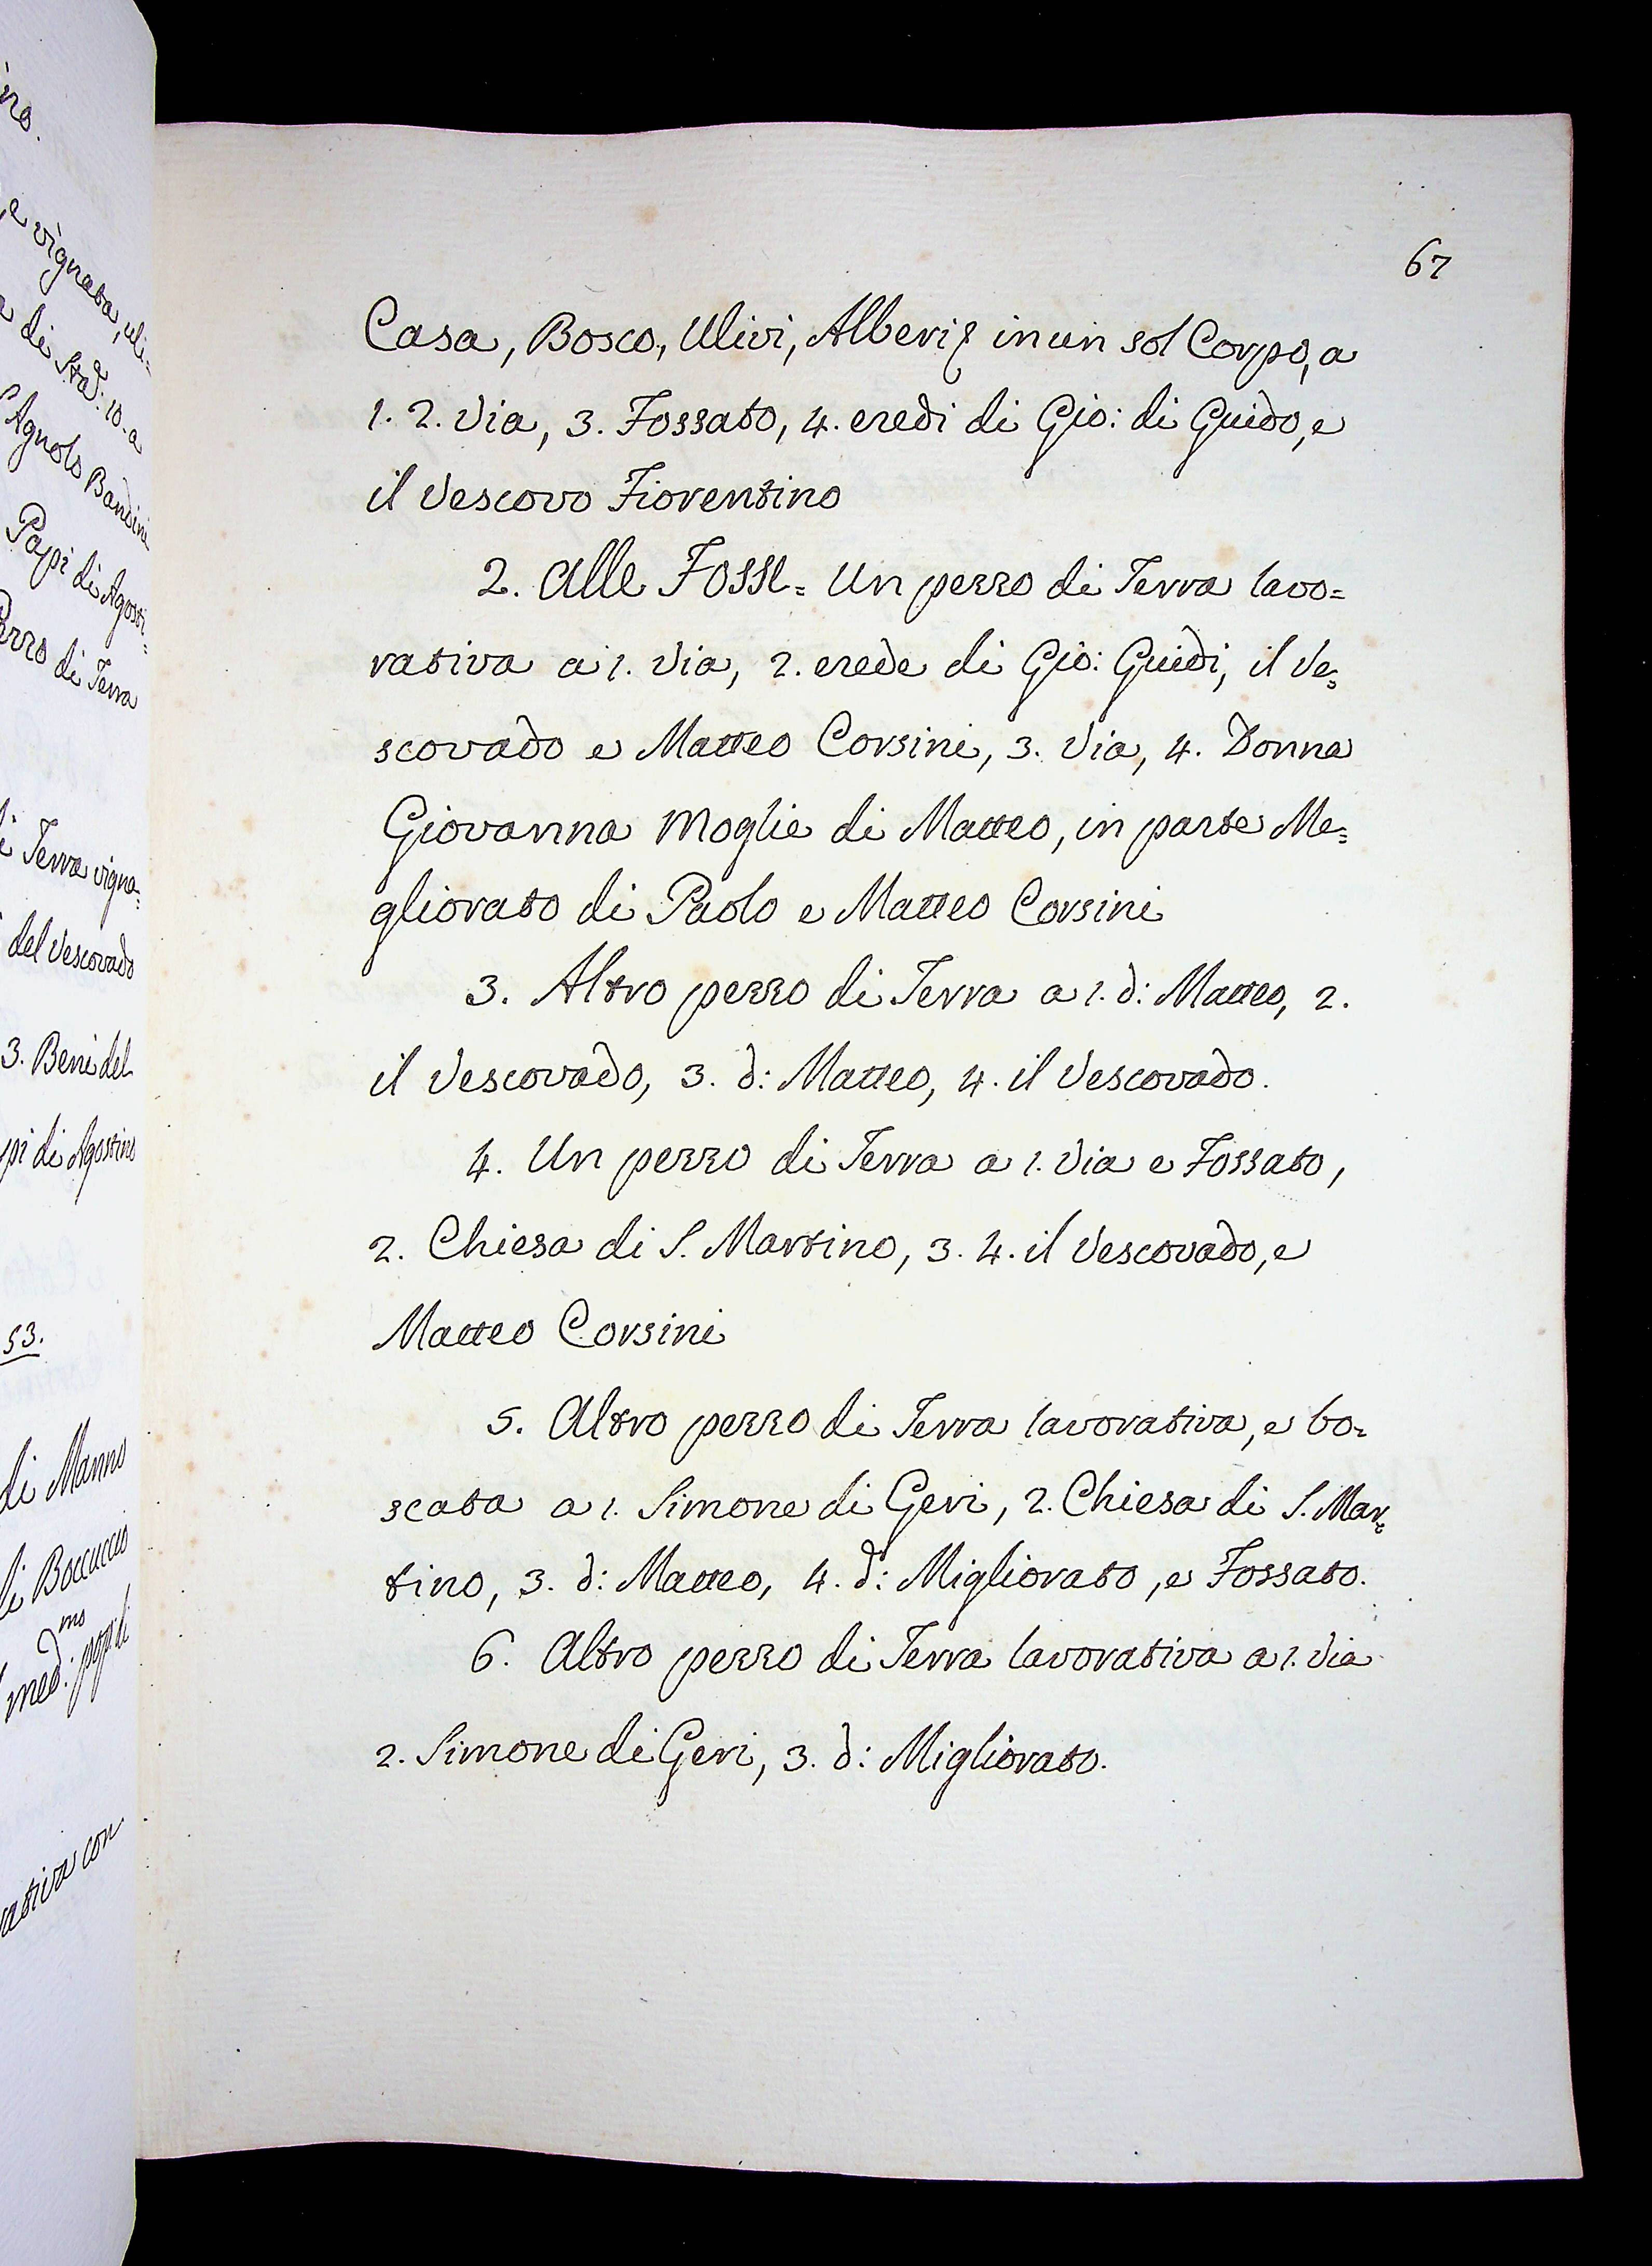 no.
e vignata, uli=
di Stad: 10. a
Agnolo Bandini
Papi di Agosti=
di Terra
Terra vigna=
del Vescovado
3. Beni del
di Agostino
53.
di Manno
di Boccuccio
con
67
Casa, Bosco, Ulivi, Alberi in un sol Corpo, a
1. 2. Via, 3. Fossato, 4. eredi di Gio: di Guido, e
il Vescovo Fiorentino
2. Alle Fosse = Un pezzo di Terra lavo=
rativa a 1. Via, 2. erede di Gio: Guidi, il Ve=
scovado e Matteo Corsini, 3. Via, 4. Donna
Giovanna Moglie di Matteo, in parte Me=
gliorato di Paolo e Matteo Corsini
3. Altro pezzo di Terra a 1. d: Matteo, 2.
il Vescovado, 3. d: Matteo, 4. il Vescovado.
4. Un pezzo di Terra a 1. Via e Fossato,
2. Chiesa di S. Martino, 3. 4. il Vescovado, e
Matteo Corsini
5. Altro pezzo di Terra lavorativa, e bo=
scata a 1. Simone di Geri, 2. Chiesa di S. Mar=
tino, 3. d: Matteo, 4. d: Migliorato, e Fossato.
6. Altro pezzo di Terra lavorativa a 1. Via
2. Simone di Geri, 3. d: Migliorato.